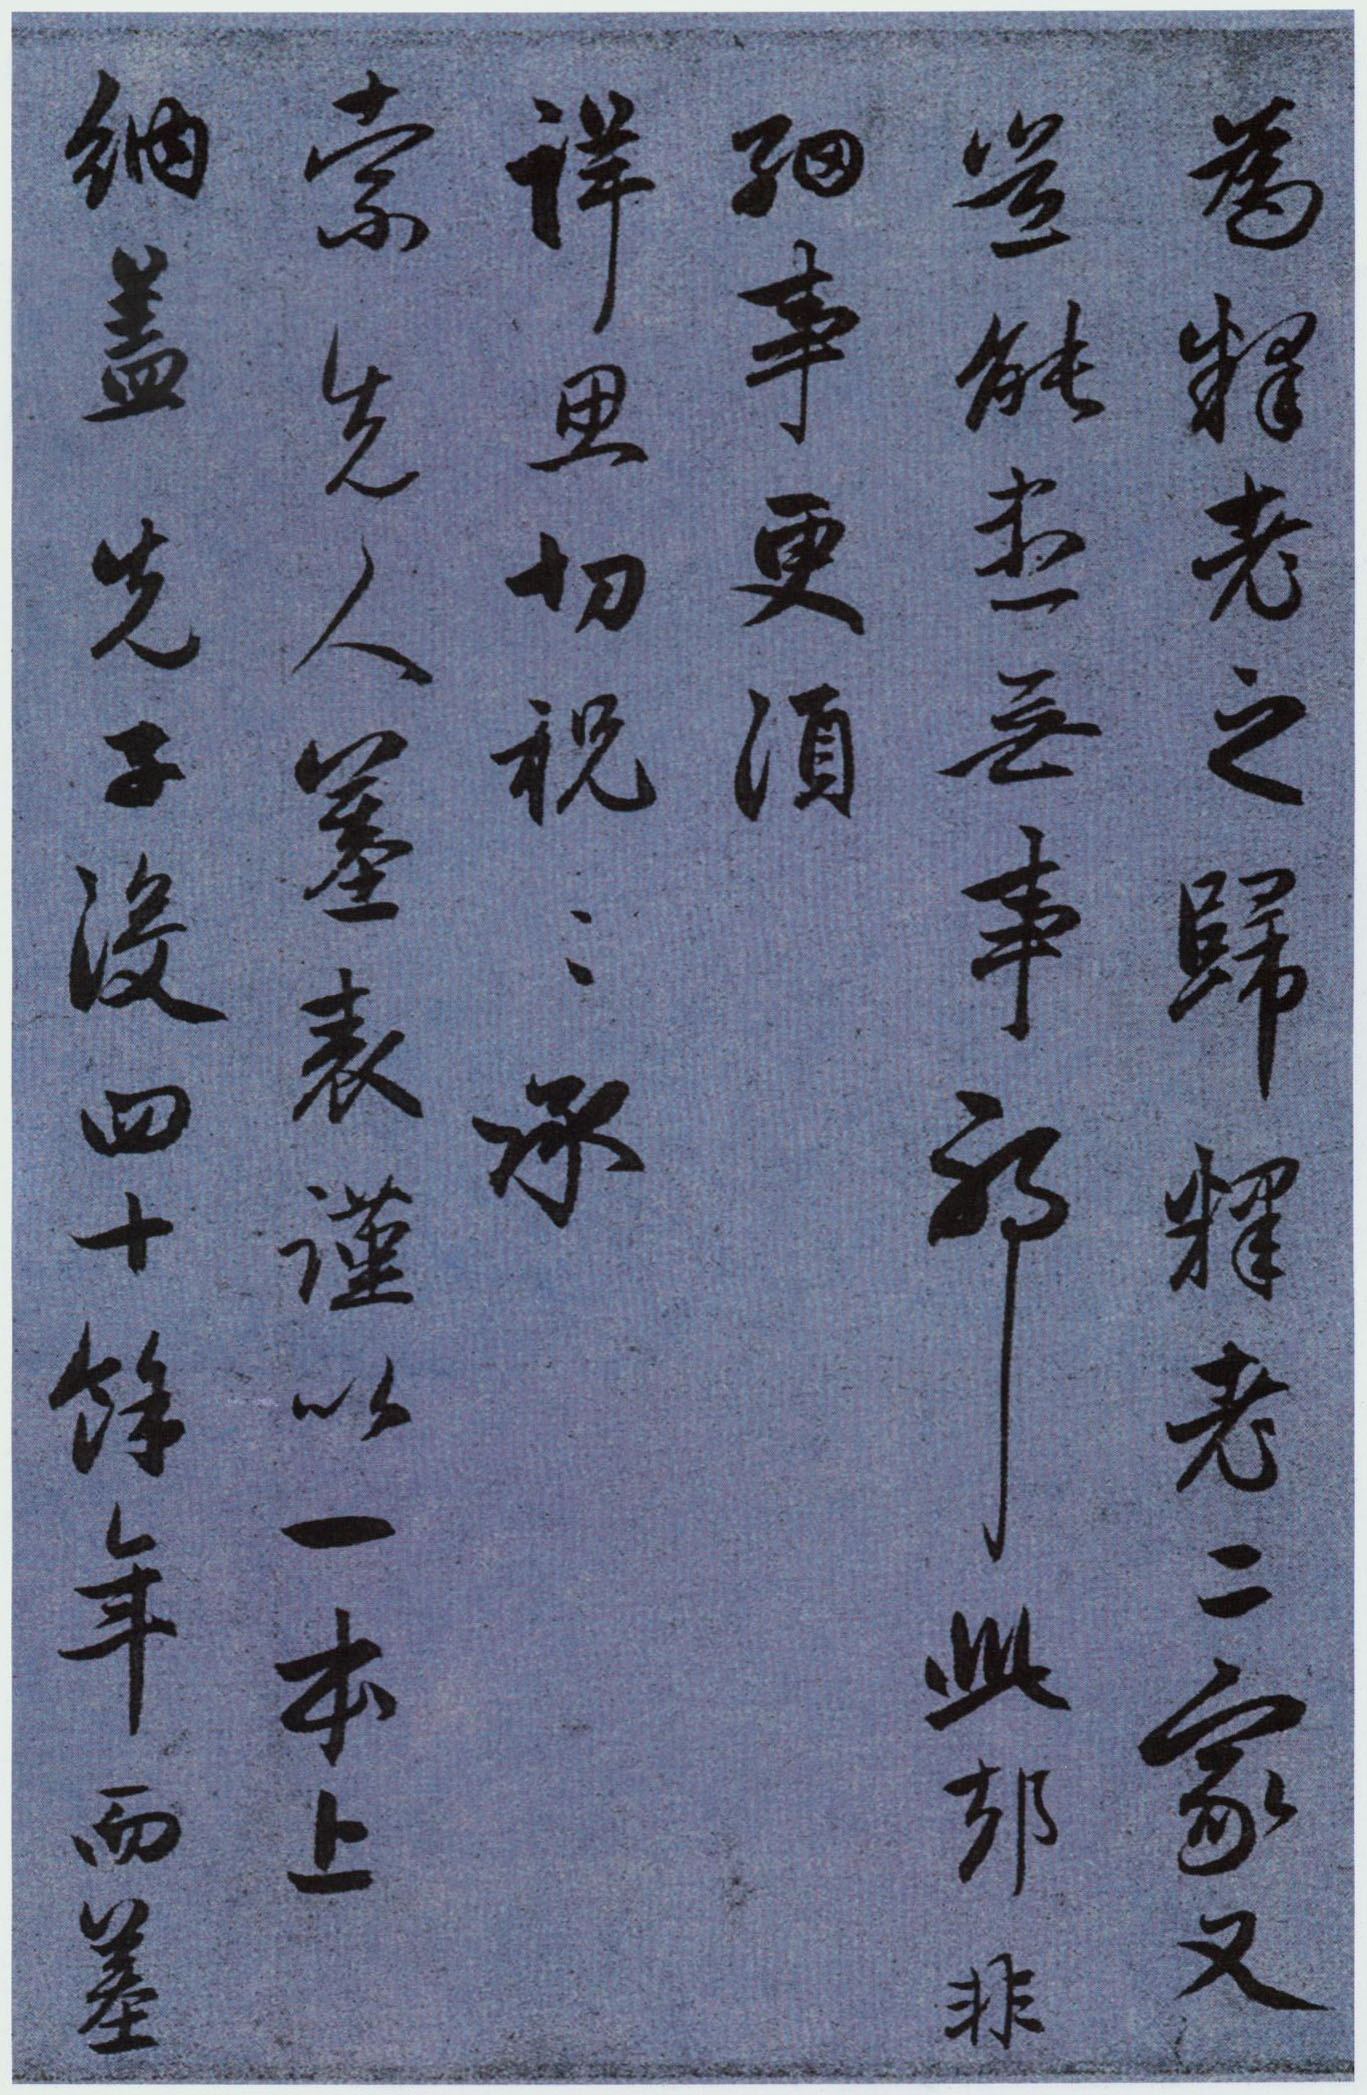 為釋老之歸釋老二家又
豈能盡無事耶此却非
細事更須
詳思切祝〻承
索先人墓表謹以一本上
納盖先子没四十餘年而墓